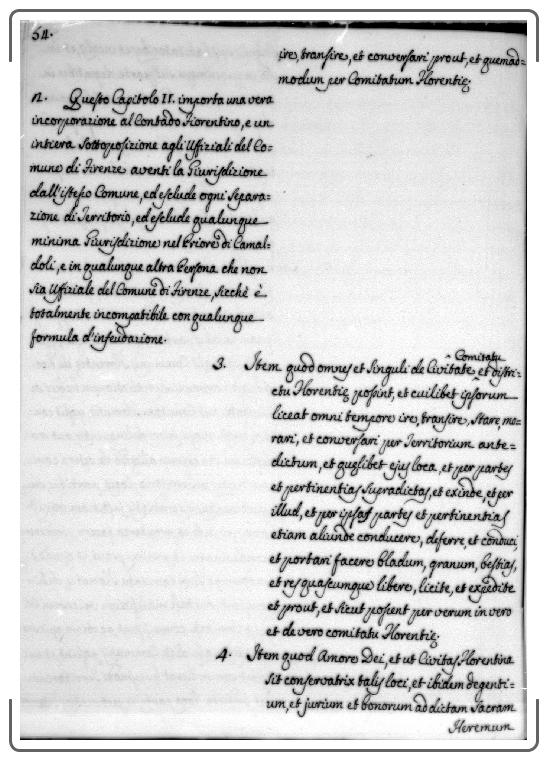 54.
ire, transire, et conversari prout, et quemad=
modum per Comitatum Florentiȩ
n. Questo Capitolo II. importa una vera
incorporazione al Contado Fiorentino, e un
intiera Sottoposizione agli Uffiziali del Co=
mune di Firenze aventi la Giurisdizione
dall'istesso Comune, ed esclude ogni Separa=
zione di Territorio, ed esclude qualunque
minima Giurisdizione nel Priore di Camal=
doli, e in qualunque altra Persona che non
sia Uffiziale del Comune di Firenze, sicchè è
totalmente incompatibile con qualunque
formula d'infeudazione.
3. Item quod omnes et Singuli de Civitate ^Comitatu^ et distri=
ctu Florentiȩ possint, et cuilibet ipsorum
liceat omni tempore ire, transire, Stare, mo=
rari, et conversari per Territorium ante=
dictum, et quȩlibet ejus loca, et per partes
et pertinentias Supradictas, et exinde, et per
illud, et per ipsas partes et pertinentias
etiam aliunde conducere, deferre, et conduci,
et portari facere bladum, granum, bestias,
et res quascumque libere, licite, et expedite
et prout, et sicut possent per verum in vero
et de vero comitatu Florentiȩ.
4. Item quod Amore Dei, et ut Civitas Florentina
Sit conservatrix talis loci, et ibidem degenti=
um, et jurium et bonorum ad dictam Sacram
Heremum